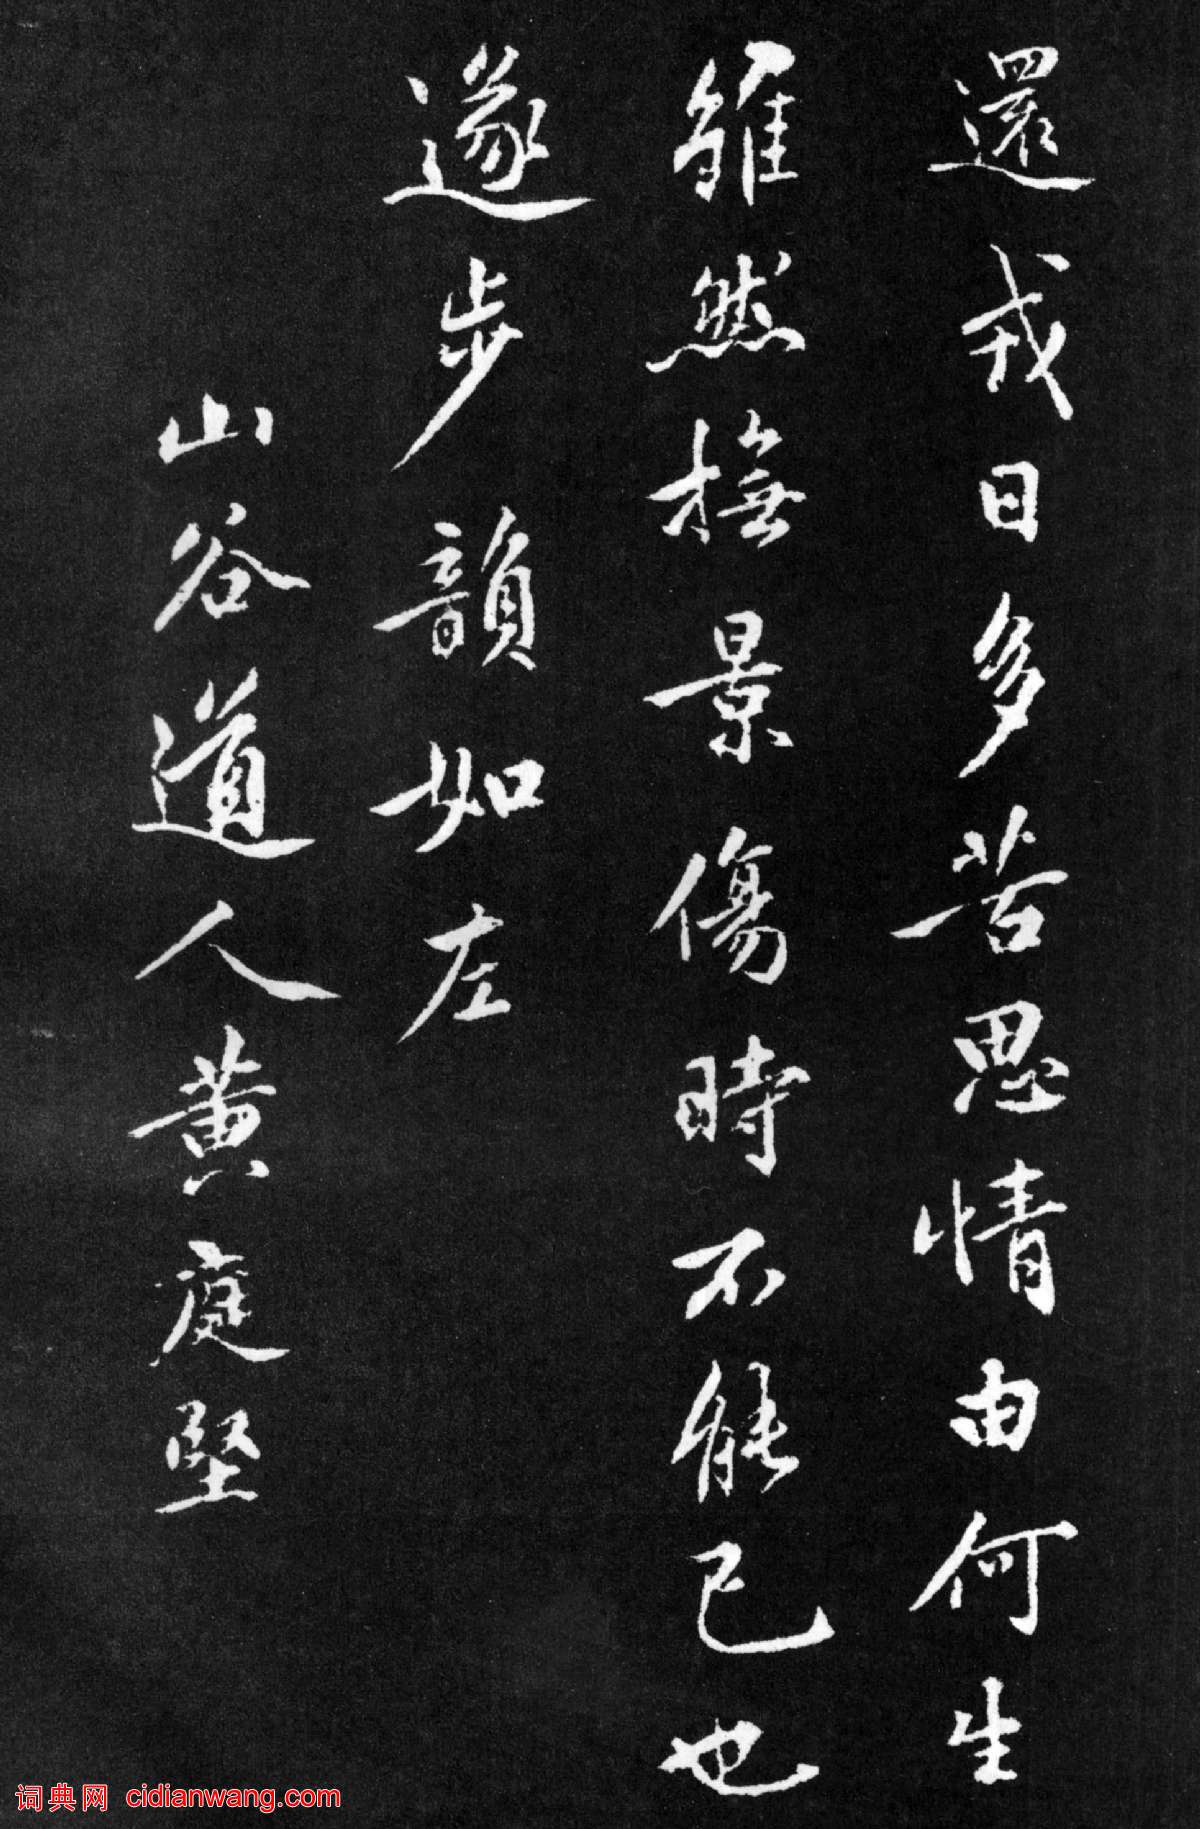 還我日多苦思情由何生
雖然撫景傷時不能已也
遂步韻如左
山谷道人黄庭堅
词典网 cidianwang.com